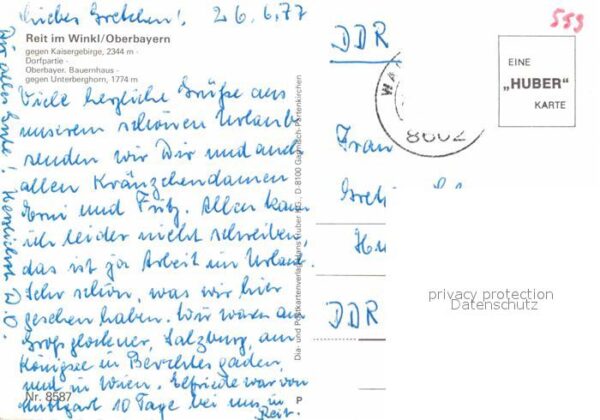 Liebes Gretchen! 26.6.77
Reit im Winkl/Oberbayern
gegen Kaisergebirge, 2344 m -
Dorfpartie -
Oberbayer. Bauernhaus -
gegen Unterberghorn, 1774 m
Viele herzliche Grüße aus
unserem schönen Urlaub
senden wir Dir und auch
allen Kränzchendamen
Erni und Fritz. Allen kann
ich leider nicht schreiben,
das ist ja Arbeit im Urlaub.
Sehr schön, was wir hier
gesehen haben. Wir waren am
Großglockner, Salzburg, am
Königsee in Berchtesgaden,
und in Wien. Elfriede war von
Stuttgart 10 Tage bei uns in
Reit.
Nr. 8587
Dir alles Gute! Herzlichst D. O.
Dia- und Postkartenverlag Hans Huber KG., D-8100 Garmisch-Partenkirchen
P
DDR
8002
559
EINE
„HUBER"
KARTE
Frau
DDR
privacy protection
Datenschutz